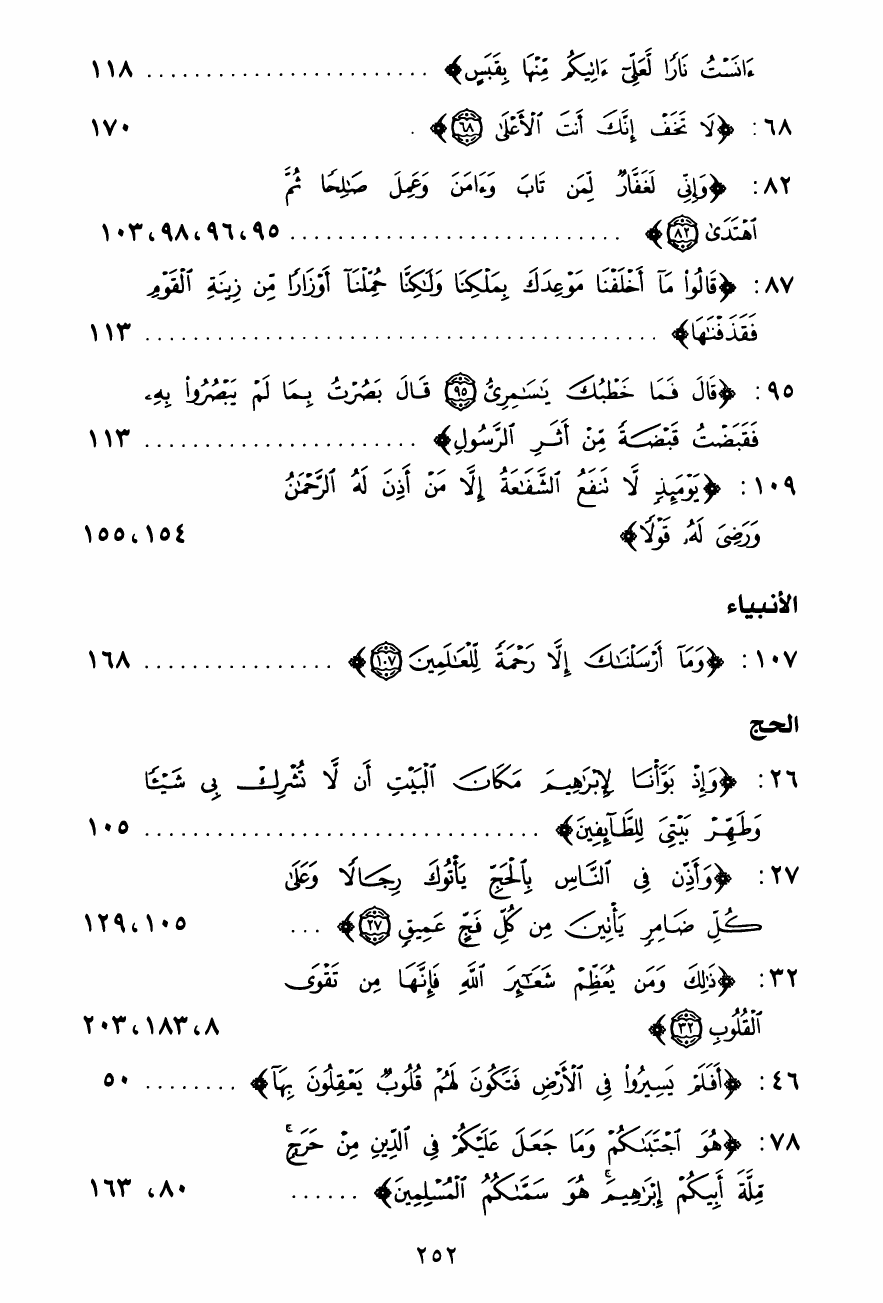 ءَانَسْتُ نَارًا لَّعَلِّىٓ ءَاتِيكُم مِّنْهَا بِقَبَسٍ﴾ ........................ ١١٨
٦٨: ﴿لَا تَخَفْ إِنَّكَ أَنتَ ٱلْأَعْلَىٰ ٦٨﴾ . ١٧٠
٨٢: ﴿وَإِنِّى لَغَفَّارٌ لِّمَن تَابَ وَءَامَنَ وَعَمِلَ صَٰلِحًا ثُمَّ
ٱهْتَدَىٰ ٨٢﴾ ............................ ٩٥، ٩٦، ٩٨، ١٠٣
٨٧: ﴿قَالُوا۟ مَآ أَخْلَفْنَا مَوْعِدَكَ بِمَلْكِنَا وَلَٰكِنَّا حُمِّلْنَآ أَوْزَارًا مِّن زِينَةِ ٱلْقَوْمِ
فَقَذَفْنَٰهَا﴾ ........................................... ١١٣
٩٥: ﴿قَالَ فَمَا خَطْبُكَ يَٰسَٰمِرِىُّ ٩٥ قَالَ بَصُرْتُ بِمَا لَمْ يَبْصُرُوا۟ بِهِۦ
فَقَبَضْتُ قَبْضَةً مِّنْ أَثَرِ ٱلرَّسُولِ﴾ ....................... ١١٣
١٠٩: ﴿يَوْمَئِذٍ لَّا تَنفَعُ ٱلشَّفَٰعَةُ إِلَّا مَنْ أَذِنَ لَهُ ٱلرَّحْمَٰنُ
وَرَضِىَ لَهُۥ قَوْلًا﴾ ١٥٤، ١٥٥
الأنبياء
١٠٧: ﴿وَمَآ أَرْسَلْنَٰكَ إِلَّا رَحْمَةً لِّلْعَٰلَمِينَ ١٠٧﴾ ................ ١٦٨
الحج
٢٦: ﴿وَإِذْ بَوَّأْنَا لِإِبْرَٰهِيمَ مَكَانَ ٱلْبَيْتِ أَن لَّا تُشْرِكْ بِى شَيْـًٔا
وَطَهِّرْ بَيْتِىَ لِلطَّآئِفِينَ﴾ ................................. ١٠٥
٢٧: ﴿وَأَذِّن فِى ٱلنَّاسِ بِٱلْحَجِّ يَأْتُوكَ رِجَالًا وَعَلَىٰ
كُلِّ ضَامِرٍ يَأْتِينَ مِن كُلِّ فَجٍّ عَمِيقٍ ٢٧﴾ ... ١٠٥، ١٢٩
٣٢: ﴿ذَٰلِكَ وَمَن يُعَظِّمْ شَعَٰٓئِرَ ٱللَّهِ فَإِنَّهَا مِن تَقْوَى
ٱلْقُلُوبِ ٣٢﴾ ٨، ١٨٣، ٢٠٣
٤٦: ﴿أَفَلَمْ يَسِيرُوا۟ فِى ٱلْأَرْضِ فَتَكُونَ لَهُمْ قُلُوبٌ يَعْقِلُونَ بِهَآ﴾ ........ ٥٠
٧٨: ﴿هُوَ ٱجْتَبَىٰكُمْ وَمَا جَعَلَ عَلَيْكُمْ فِى ٱلدِّينِ مِنْ حَرَجٍۚ
مِّلَّةَ أَبِيكُمْ إِبْرَٰهِيمَۚ هُوَ سَمَّىٰكُمُ ٱلْمُسْلِمِينَ﴾ ...... ٨٠، ١٦٣
٢٥٢